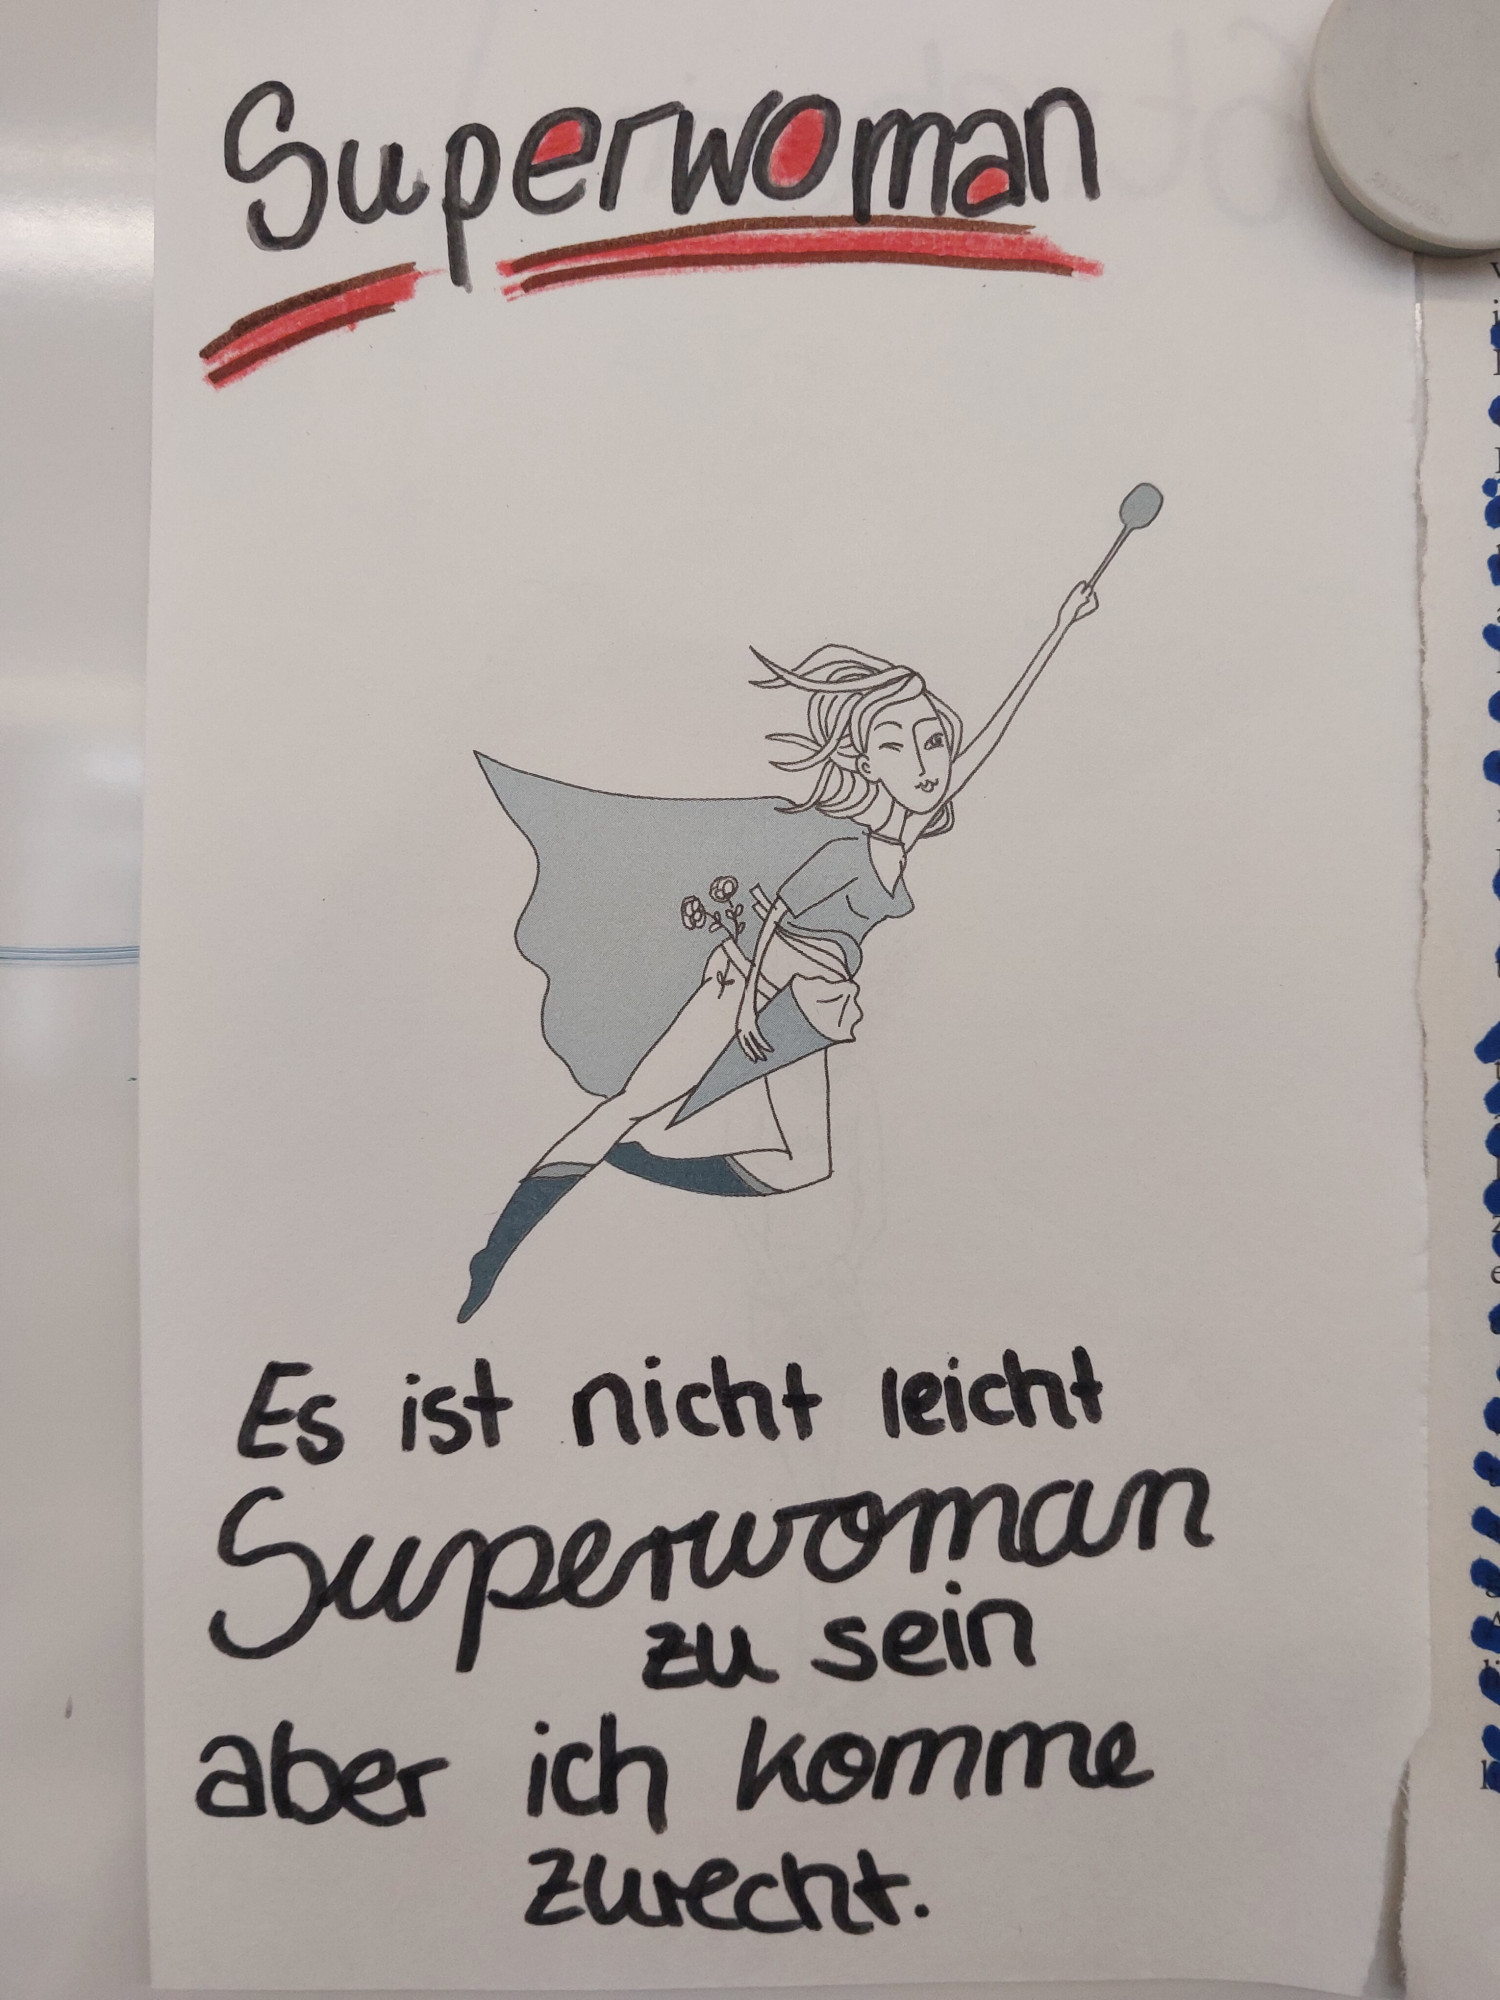 Superwoman
Es ist nicht leicht
Superwoman
zu sein
aber ich komme
zurecht.